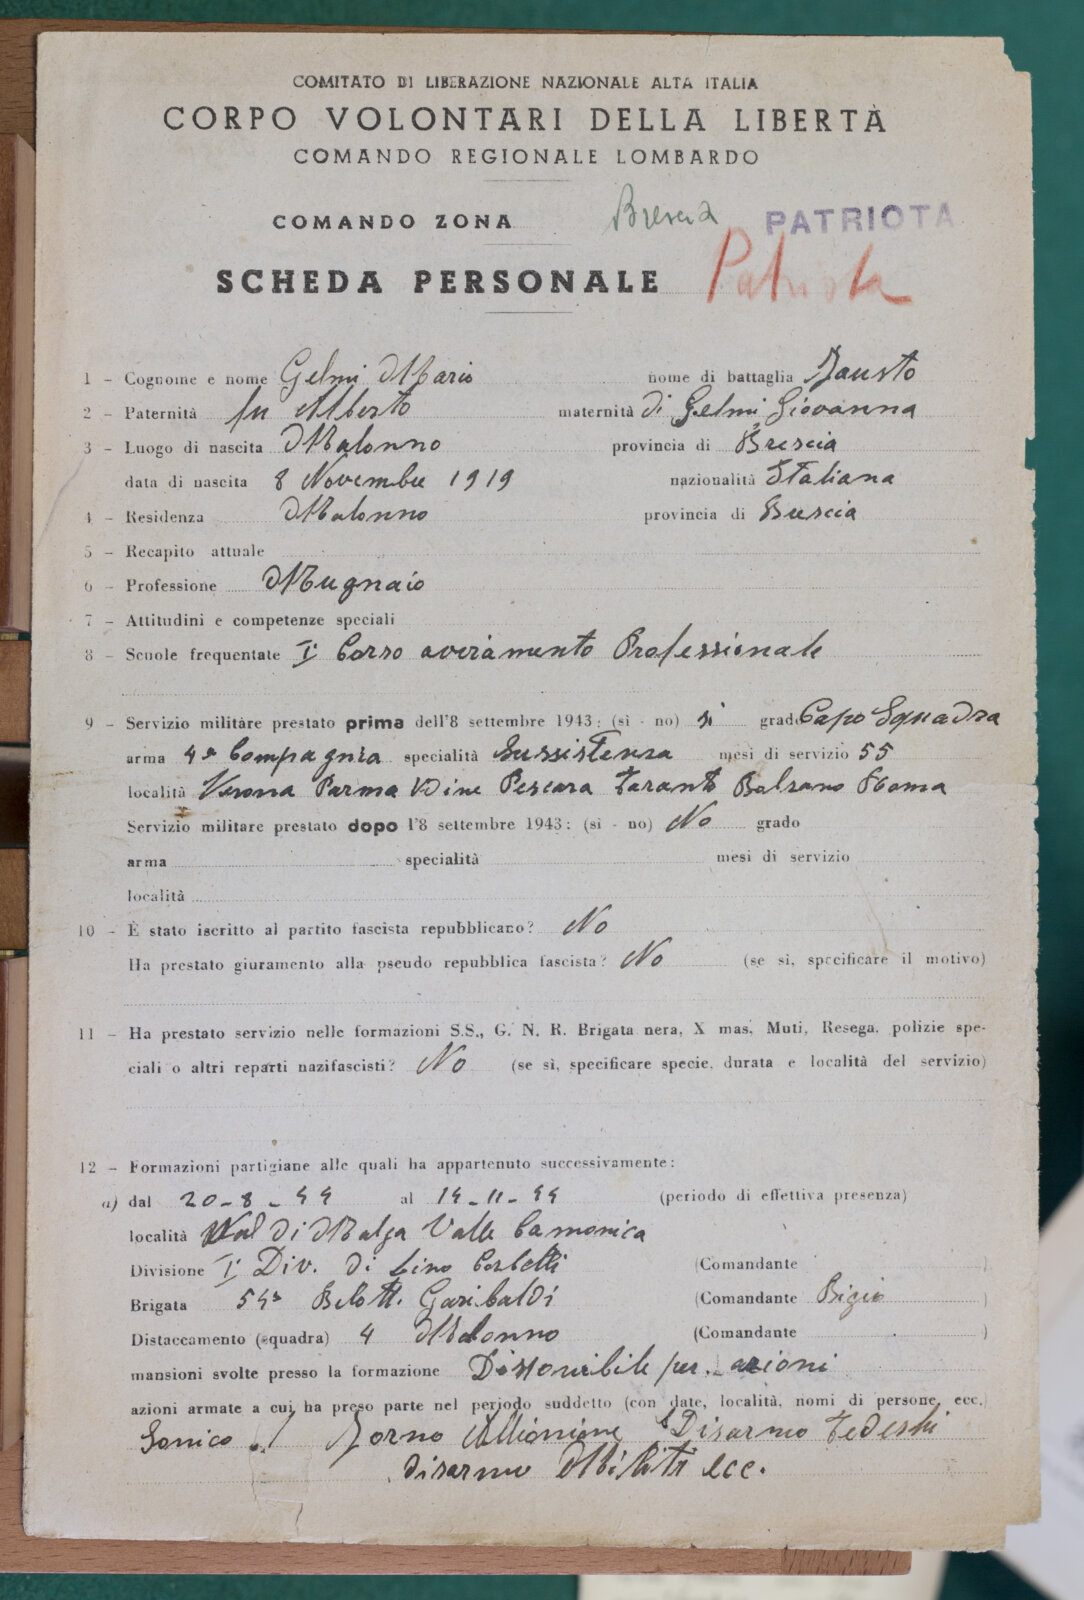 COMITATO DI LIBERAZIONE NAZIONALE ALTA ITALIA
CORPO VOLONTARI DELLA LIBERTÀ
COMANDO REGIONALE LOMBARDO
COMANDO ZONA Brescia PATRIOTA
SCHEDA PERSONALE Patriota
1 - Cognome e nome Gelmi Mario nome di battaglia Fausto
2 - Paternità fu Alberto maternità di Gelmi Giovanna
3 - Luogo di nascita Malonno provincia di Brescia
data di nascita 8 Novembre 1919 nazionalità Italiana
4 - Residenza Malonno provincia di Brescia
5 - Recapito attuale
6 - Professione Mugnaio
7 - Attitudini e competenze speciali
8 - Scuole frequentate I° Corso avviamento Professionale
9 - Servizio militare prestato prima dell'8 settembre 1943: (sì - no) si grado Capo Squadra
arma 4ª Compagnia specialità Sussistenza mesi di servizio 55
località Verona Parma Udine Pescara Taranto Bolzano Roma
Servizio militare prestato dopo l'8 settembre 1943: (sì - no) No grado
arma specialità mesi di servizio
località
10 - È stato iscritto al partito fascista repubblicano? No
Ha prestato giuramento alla pseudo repubblica fascista? No (se sì, specificare il motivo)
11 - Ha prestato servizio nelle formazioni S.S., G. N. R. Brigata nera, X mas, Muti, Resega, polizie spe-
ciali o altri reparti nazifascisti? No (se sì, specificare specie, durata e località del servizio)
12 - Formazioni partigiane alle quali ha appartenuto successivamente:
a) dal 20-8-44 al 14-11-44 (periodo di effettiva presenza)
località Val di Malga Valle Camonica
Divisione I° Div. di Lino (Comandante )
Brigata 54ª Belott. Garibaldi (Comandante Bigio )
Distaccamento (squadra) 4 Malonno (Comandante )
mansioni svolte presso la formazione Disponibile per azioni
azioni armate a cui ha preso parte nel periodo suddetto (con date, località, nomi di persone, ecc.)
Sonico Forno Allionione Disarmo Tedeschi
disarmo Militi ecc.